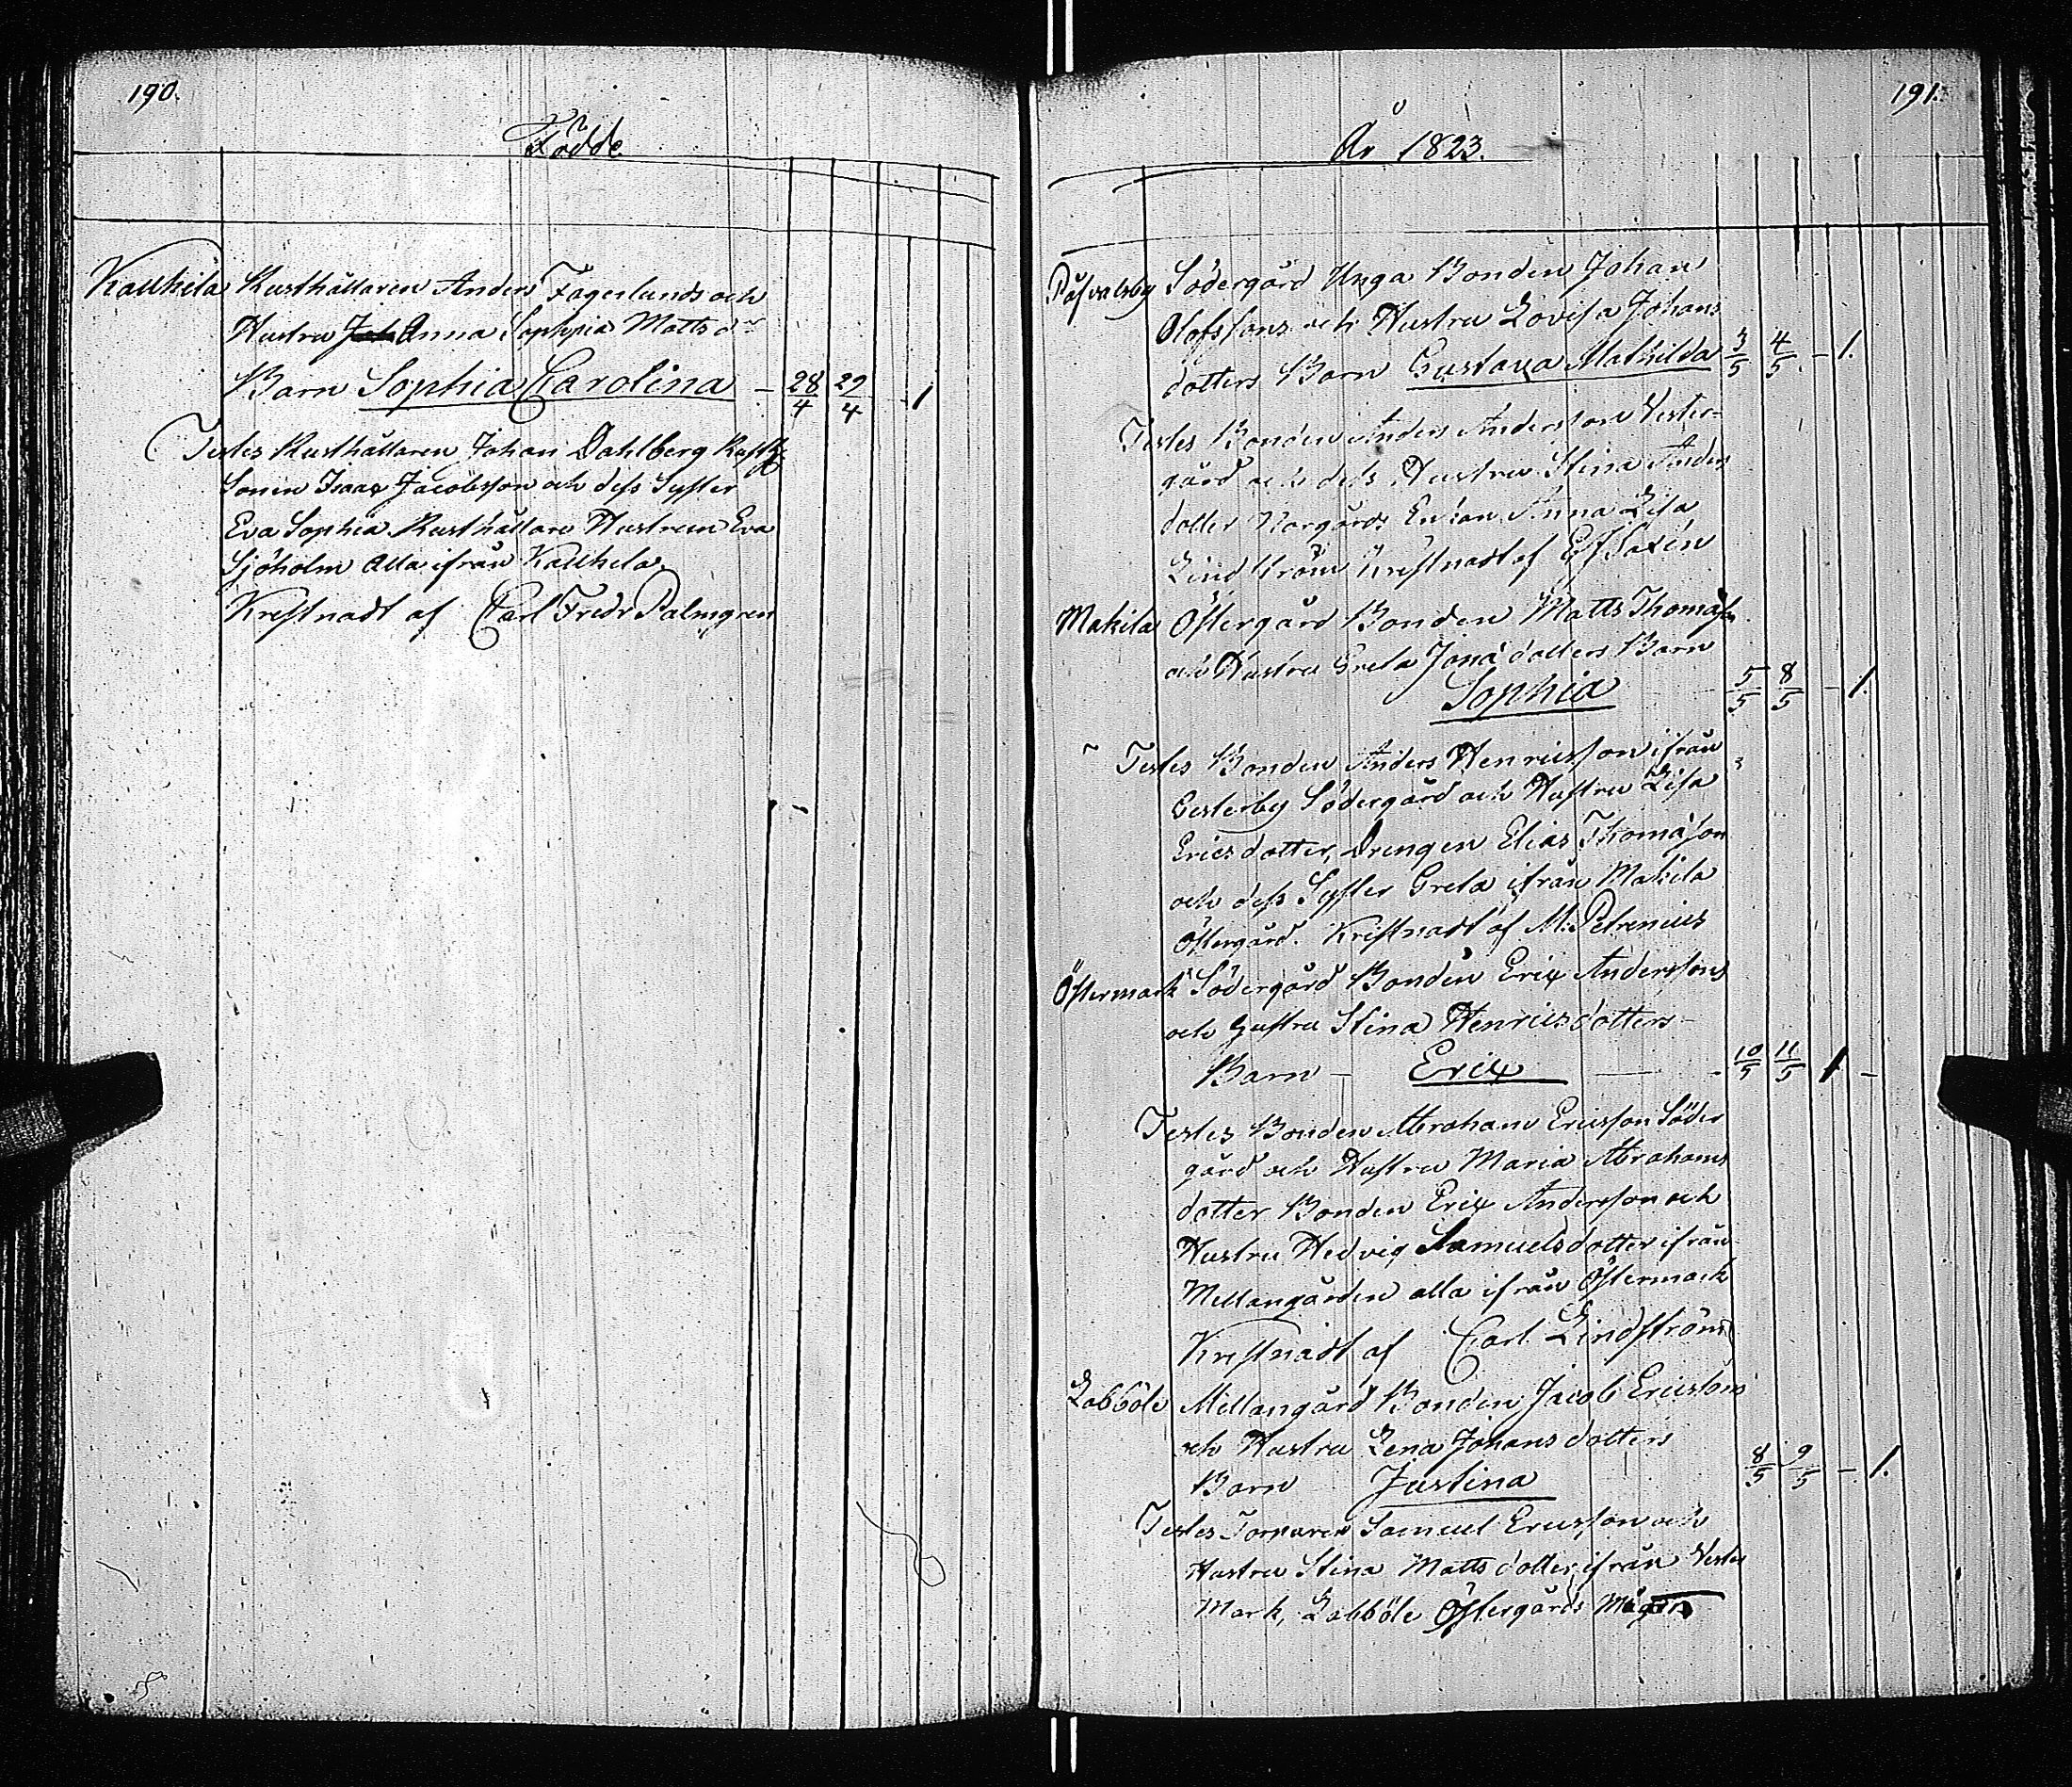 190.
Födde
Kailhila Rusthållaren Anders Fagerlunds och
Hustru Anna Sophia Matts dr
Barn Sophia Carolina - 28/4 29/4 - 1
Testes Rusthållaren Johan Dahlberg Rusth
Sonen Isaac Jacobsson och dess Syster
Eva Sophia Rusthållare Hustrun Eva
Sjöholm Alla ifrån Kailhila.
Kristnadt af Carl Fredr Palmgren
191.
År 1823.
Påfvalsby Södergård Unga Bonden Johan
Olofssons och Hustru Lovisa Johans
dotters Barn Gustava Mathilda 3/5 4/5 - 1.
Testes Bonden Anders Andersson Vester-
gård och dess Hustru Stina Anders
dotter Norgårds Enkan Anna Lisa
Lindström Kristnadt af Saxén
Makila Östergård Bonden Matts Thomasson
och Hustru Greta Jona dotters Barn
Sophia 5/5 8/5 - 1.
Testes Bonden Anders Henricsson ifrån
Gesterby Södergård och Hustru Lisa
Erics dotter, Drengen Elias Thomasson
och dess Syster Greta ifrån Makila
Östergård. Kristnadt af M: Petrenius
Östermark Södergård Bonden Eric Anderssons
och Hustru Stina Henricsdotters
Barn - Eric - 10/5 11/5 1 -
Testes Bonden Abraham Ericsson Söder
gård och Hustru Maria Abrahams
dotter Bonden Eric Andersson och
Hustru Hedvig Samuelsdotter ifrån
Mellangården alla ifrån Östermark
Kristnadt af Carl Lindström
Labböle Mellangård Bonden Jacob Ericssons
och Hustru Lena Johans dotters
Barn Justina 8/5 9/5 - 1.
Testes Torparen Samuel Ericsson och
Hustru Stina Mattsdotter ifrån Vester
Mark, Labböle Östergårds Mågen